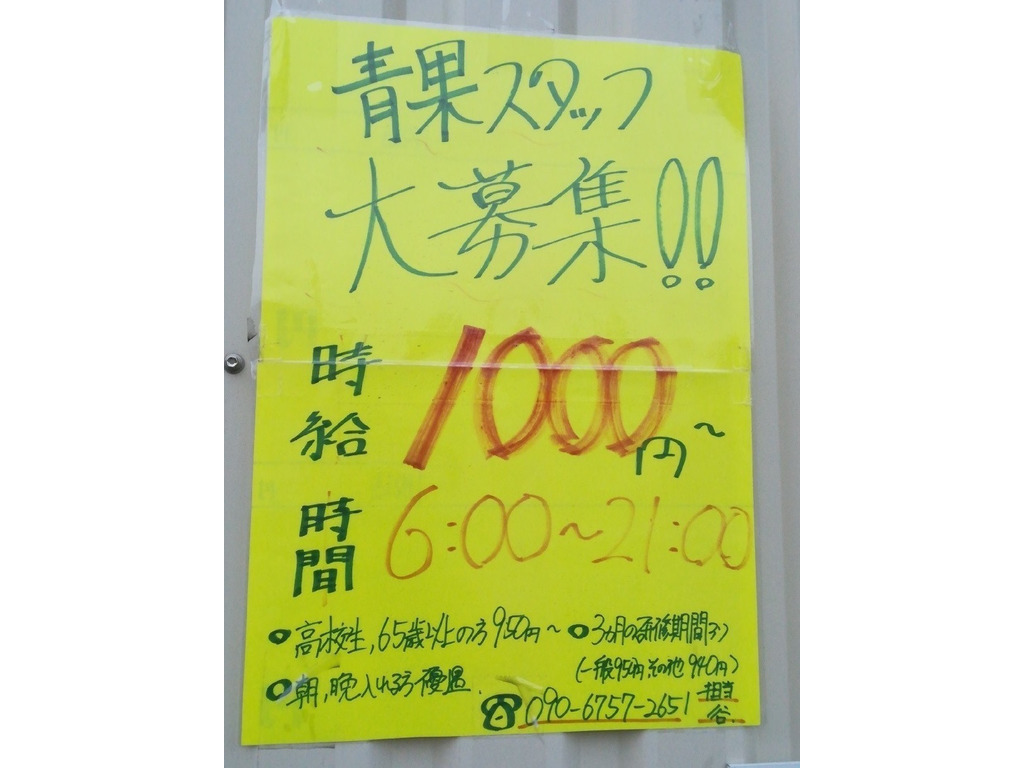 青果スタッフ
大募集!!
時給 1000円~
時間 6:00~21:00
●高校生,65歳以上の方950円~
●3ヵ月の研修期間アリ
(一般950円,その他940円)
●朝,晩入れる方優遇.
☎090-6757-2651 担当 谷.